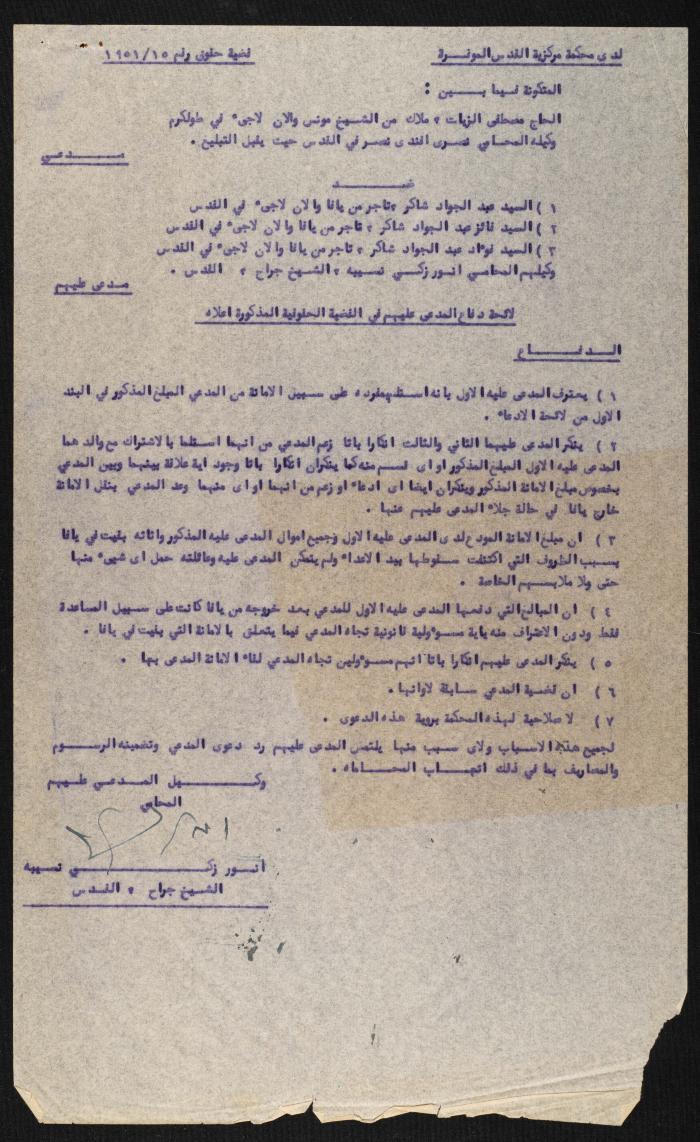 لدى محكمة مركزية القدس الموقرة
قضية حقوق رقم ١٩٥١/١٥
المتكونة فيما بـــين :
الحاج مصطفى الزيات ، ملاك من الشيخ مونس والان لاجىء في طولكرم
وكيله المحامي نصرى افندى نصر في القدس حيث يقبل التبليغ .
مـــدعي
ضـــد
١ ) السيد عبد الجواد شاكر ، تاجر من يافا والان لاجىء في القدس
٢ ) السيد فائز عبد الجواد شاكر ، تاجر من يافا والان لاجىء في القدس
٣ ) السيد فوءاد عبد الجواد شاكر ، تاجر من يافا والان لاجىء في القدس
وكيلهم المحامي انور زكي نسيبه ، الشيخ جراح ، القدس .
مدعى عليهم
لائحة دفاع المدعى عليهم في القضية الحقوقية المذكورة اعلاه
الـــدفـــاع
١ ) يعترف المدعى عليه الاول بانه استلم بمفرده على سبيل الامانة من المدعي المبلغ المذكور في البند
الاول من لائحة الادعاء .
٢ ) ينكر المدعى عليهما الثاني والثالث انكارا باتا زعم المدعي من انهما استلما بالاشتراك مع والدهما
المدعى عليه الاول المبلغ المذكور او اى قسم منه كما ينكران انكارا باتا وجود اية علاقة بينهما وبين المدعي
بخصوص مبلغ الامانة المذكور وينكران ايضا اى ادعاء او زعم من انهما او اى منهما وعد المدعي بنقل الامانة
خارج يافا في حالة جلاء المدعى عليهم عنها .
٣ ) ان مبلغ الامانة المودع لدى المدعى عليه الاول وجميع اموال المدعى عليه المذكور واثاثه بقيت في يافا
بسبب الظروف التي اكتنفت سقوطها بيد الاعداء ولم يتمكن المدعى عليه وعائلته حمل اى شيىء منها
حتى ولا ملابسهم الخاصة .
٤ ) ان المبالغ التي دفعها المدعى عليه الاول للمدعي بعد خروجه من يافا كانت على سبيل المساعدة
فقط ودون الاعتراف منه باية مسوءولية قانونية تجاه المدعي فيما يتعلق بالامانة التي بقيت في يافا .
٥ ) ينكر المدعى عليهم انكارا باتا انهم مسوءولين تجاه المدعي لقاء الامانة المدعى بها .
٦ ) ان قضية المدعي سابقة لاوانها .
٧ ) لا صلاحية لهذه المحكمة بروية هذه الدعوى .
لجميع هذه الاسباب ولاى سبب منها يلتمس المدعى عليهم رد دعوى المدعي وتضمينه الرسوم
والمصاريف بما في ذلك اتعـاب المحـــاماه .
وكـــيل المـــدعى عليهم
المحامي
انـــور زكـــي نسيبه
الشيخ جراح ، القدس